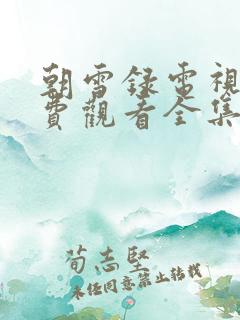 朝雪録電視
費觀看全集
荀志堅
未經同意禁止轉載